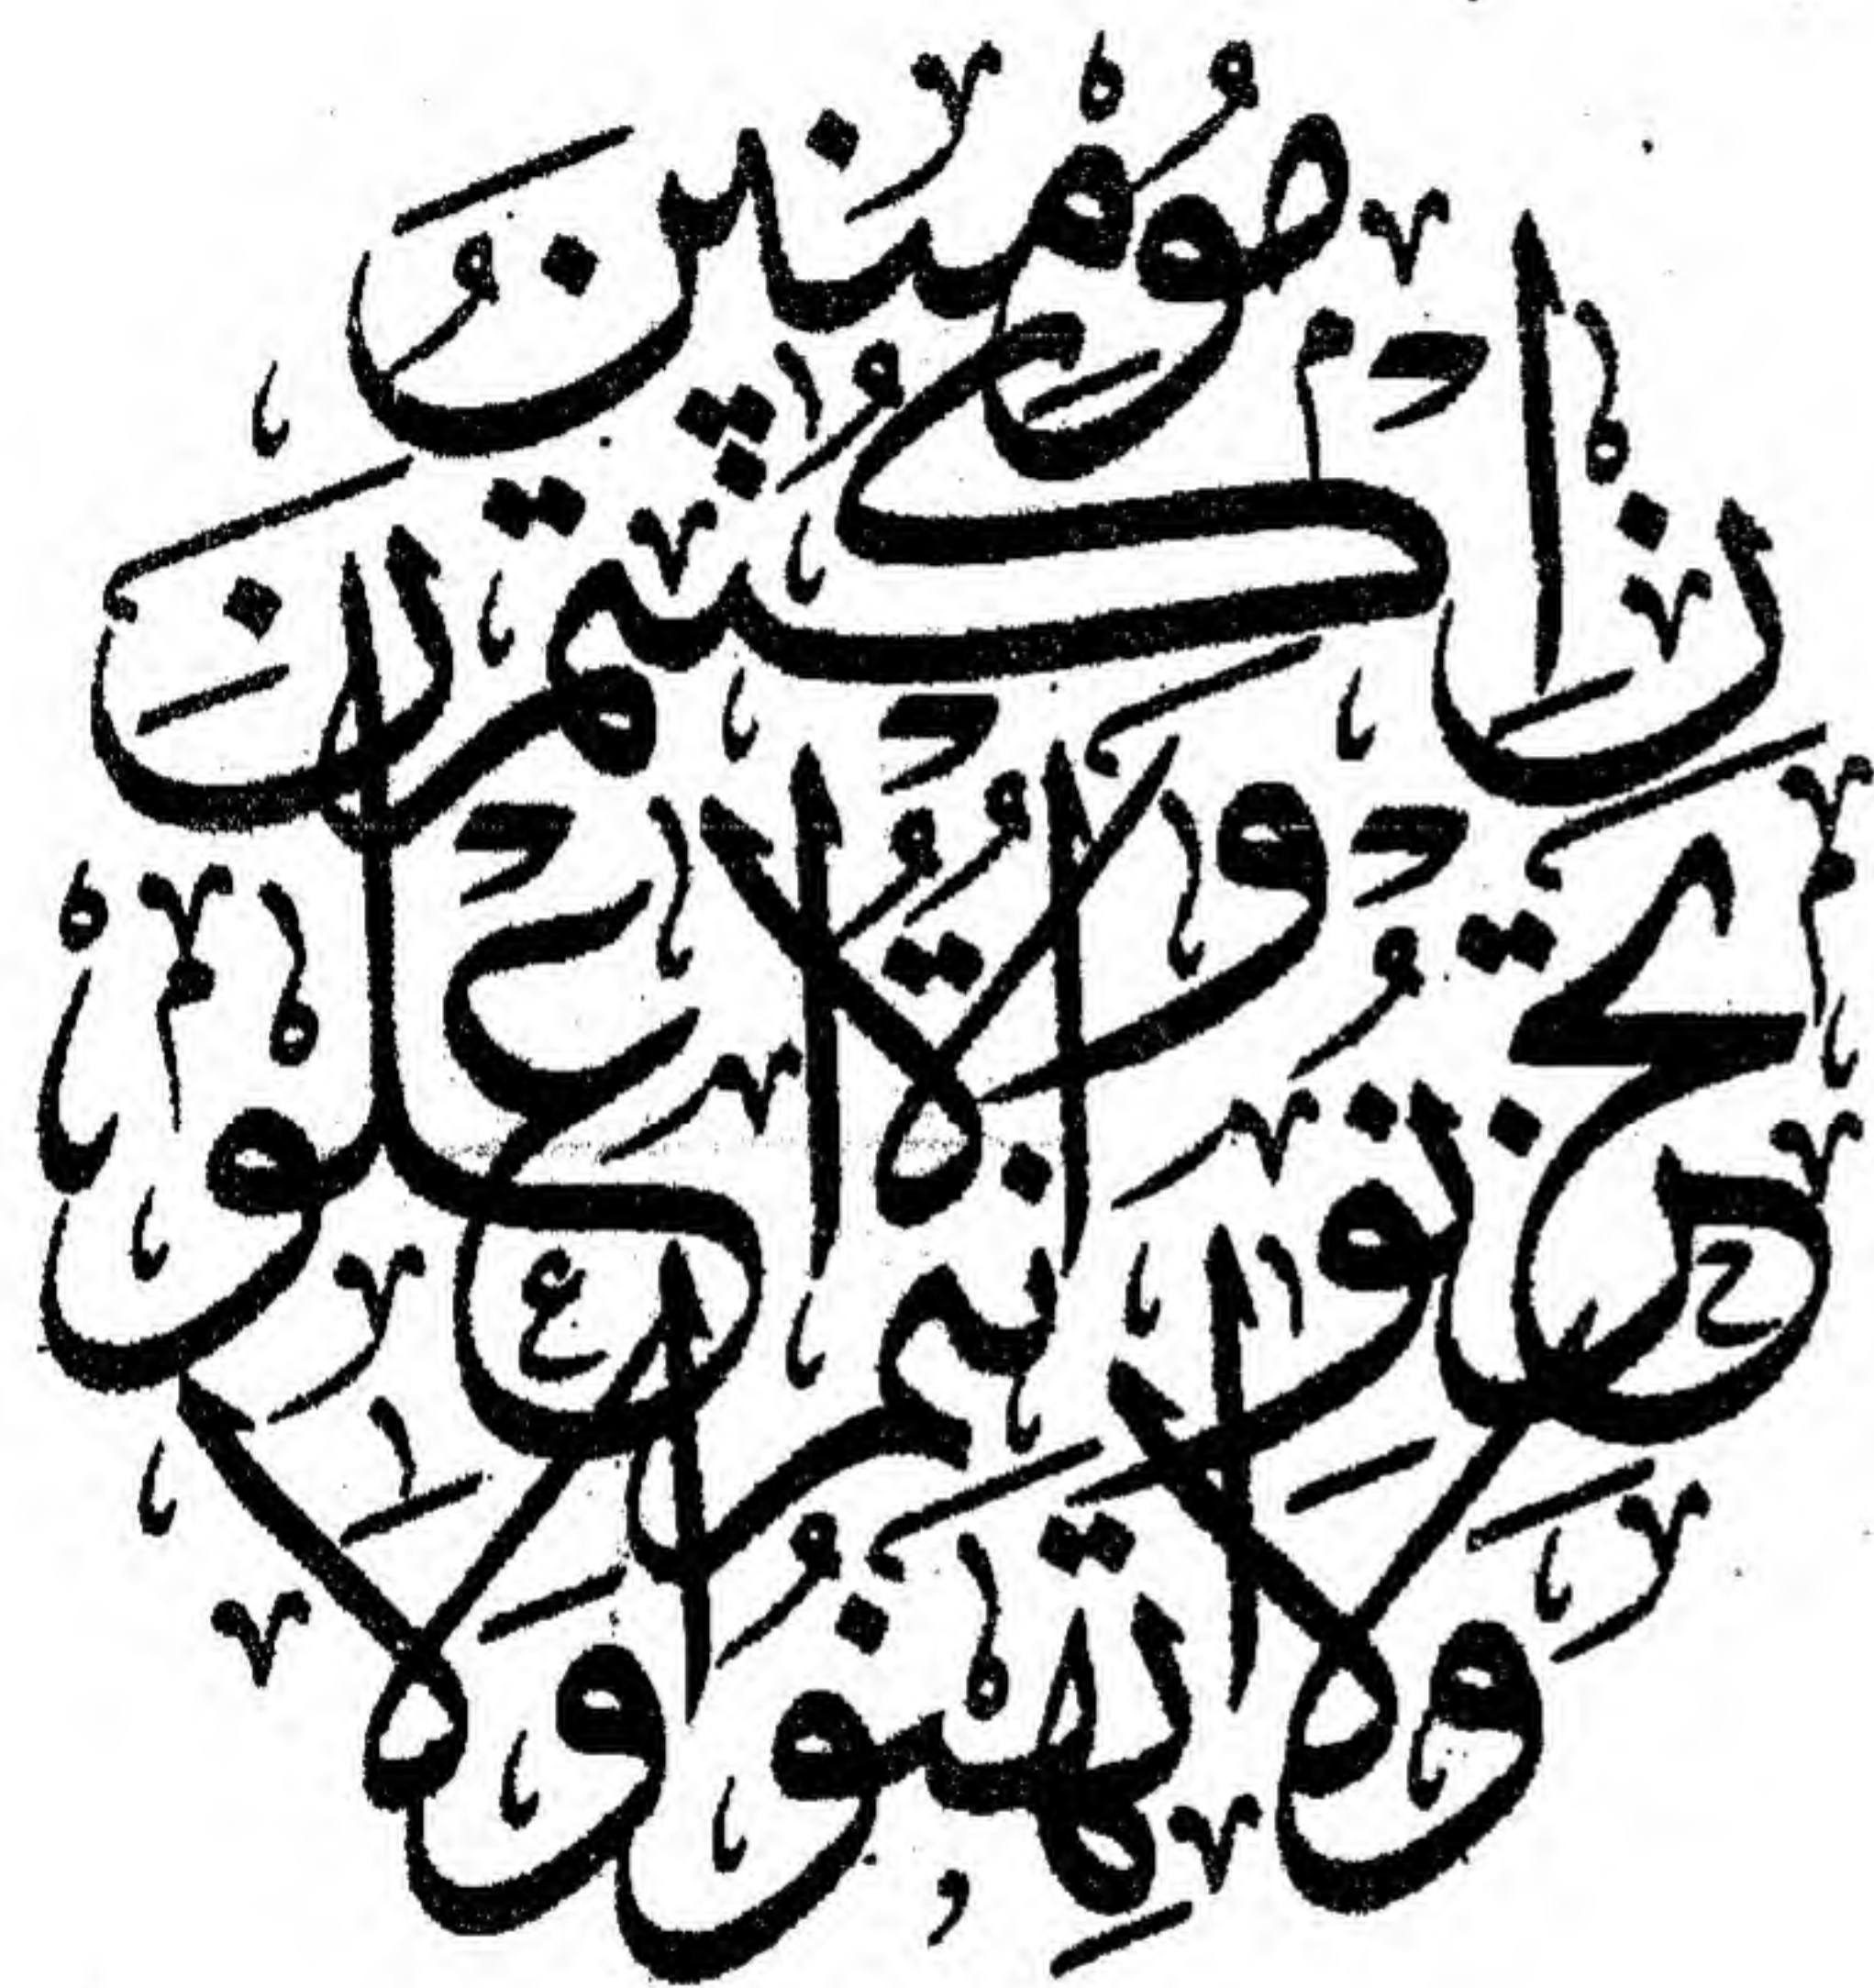 وَلَا تَهِنُوا وَلَا
تَحْزَنُوا وَأَنْتُمُ الْأَعْلَوْنَ
إِنْ كُنْتُمْ
مُؤْمِنِينَ